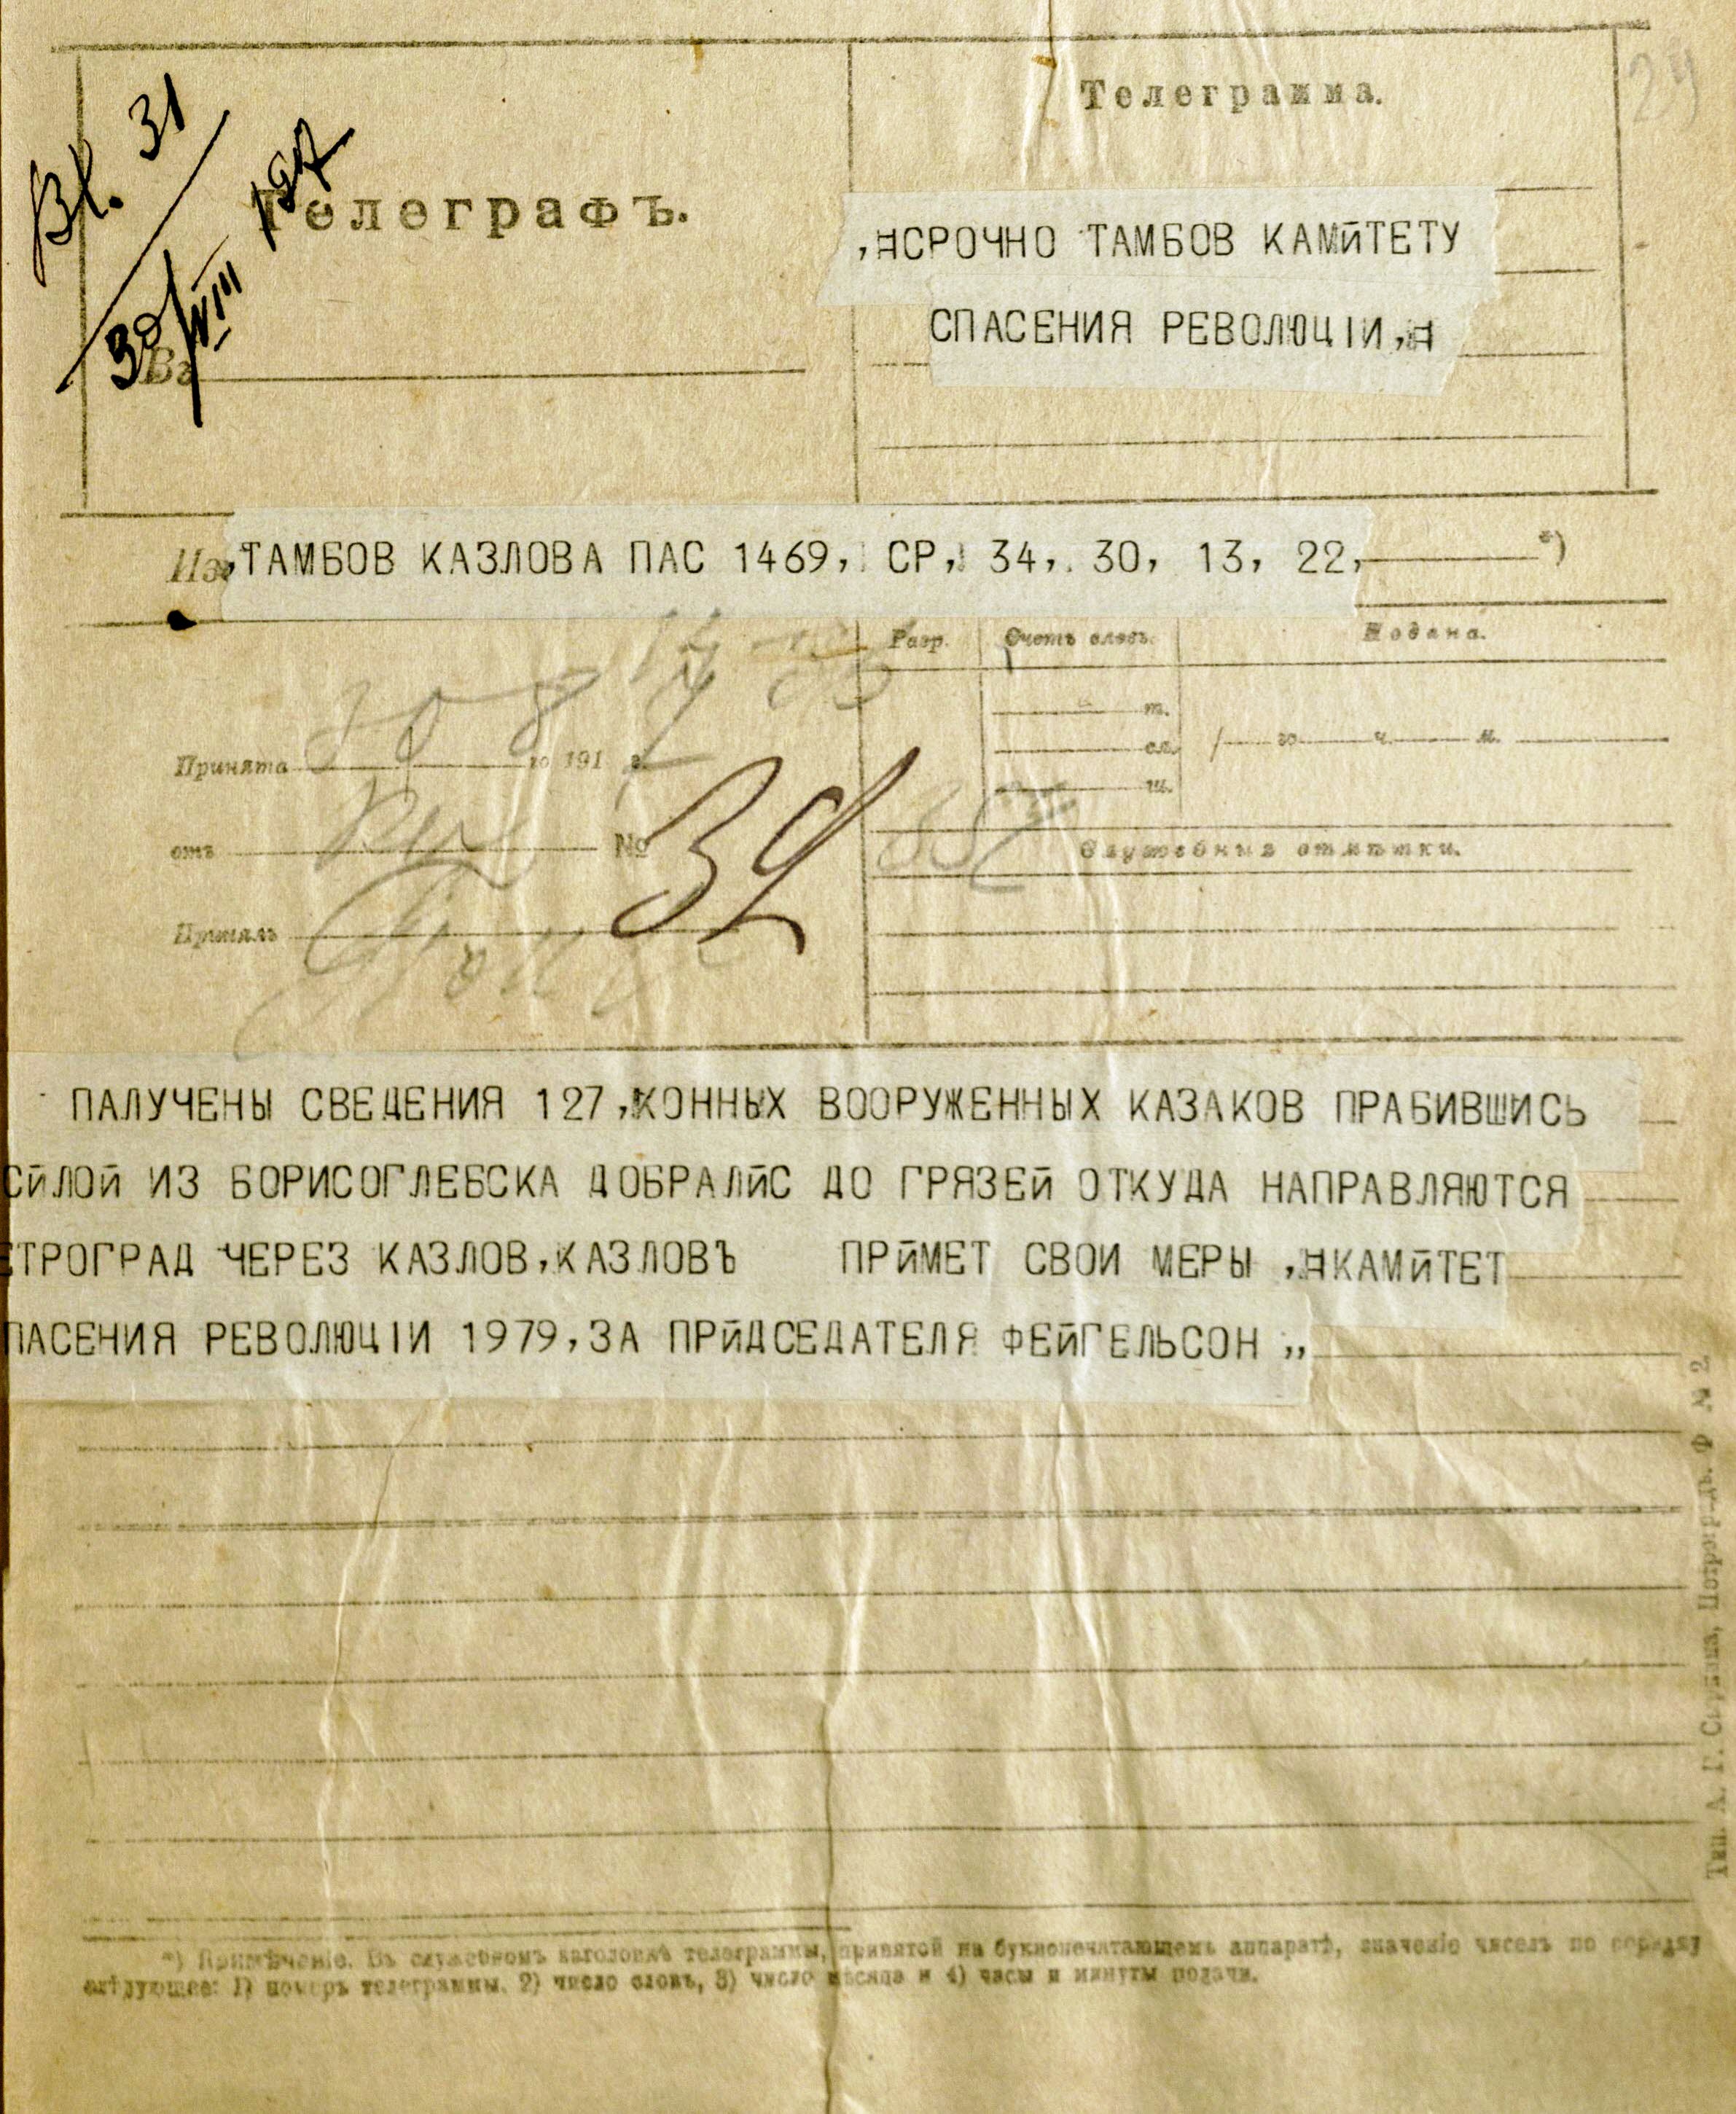 29
Вх. 31
30/VIII 1917
Телеграфъ.
Въ
Телеграмма.
,=СРОЧНО ТАМБОВ КАМЙТЕТУ
СПАСЕНИЯ РЕВОЛЮЦІИ,=
Из ,ТАМБОВ КАЗЛОВА ПАС 1469, СР, 34, 30, 13, 22, *)
Разр. Счетъ словъ. Подана.
т.
Принята 30 8 го 191 7 г.
сл. / го ч. м.
ш.
отъ № 39
Служебныя отмѣтки.
Принялъ
ПАЛУЧЕНЫ СВЕДЕНИЯ 127,КОННЫХ ВООРУЖЕННЫХ КАЗАКОВ ПРАБИВШИСЬ
СЙЛОЙ ИЗ БОРИСОГЛЕБСКА ДОБРАЛЙС ДО ГРЯЗЕЙ ОТКУДА НАПРАВЛЯЮТСЯ
ЕТРОГРАД ЧЕРЕЗ КАЗЛОВ,КАЗЛОВЪ ПРЙМЕТ СВОИ МЕРЫ ,=КАМЙТЕТ
ПАСЕНИЯ РЕВОЛЮЦІИ 1979,ЗА ПРЙДСЕДАТЕЛЯ ФЕЙГЕЛЬСОН ,,
*) Примѣчаніе. Въ служебномъ заголовкѣ телеграммы, принятой на буквопечатающемъ аппаратѣ, значеніе чиселъ по порядку
слѣдующее: 1) номеръ телеграммы, 2) число словъ, 3) число мѣсяца и 4) часы и минуты подачи.
Тип. А. Г. Петрогр. Ф № 2